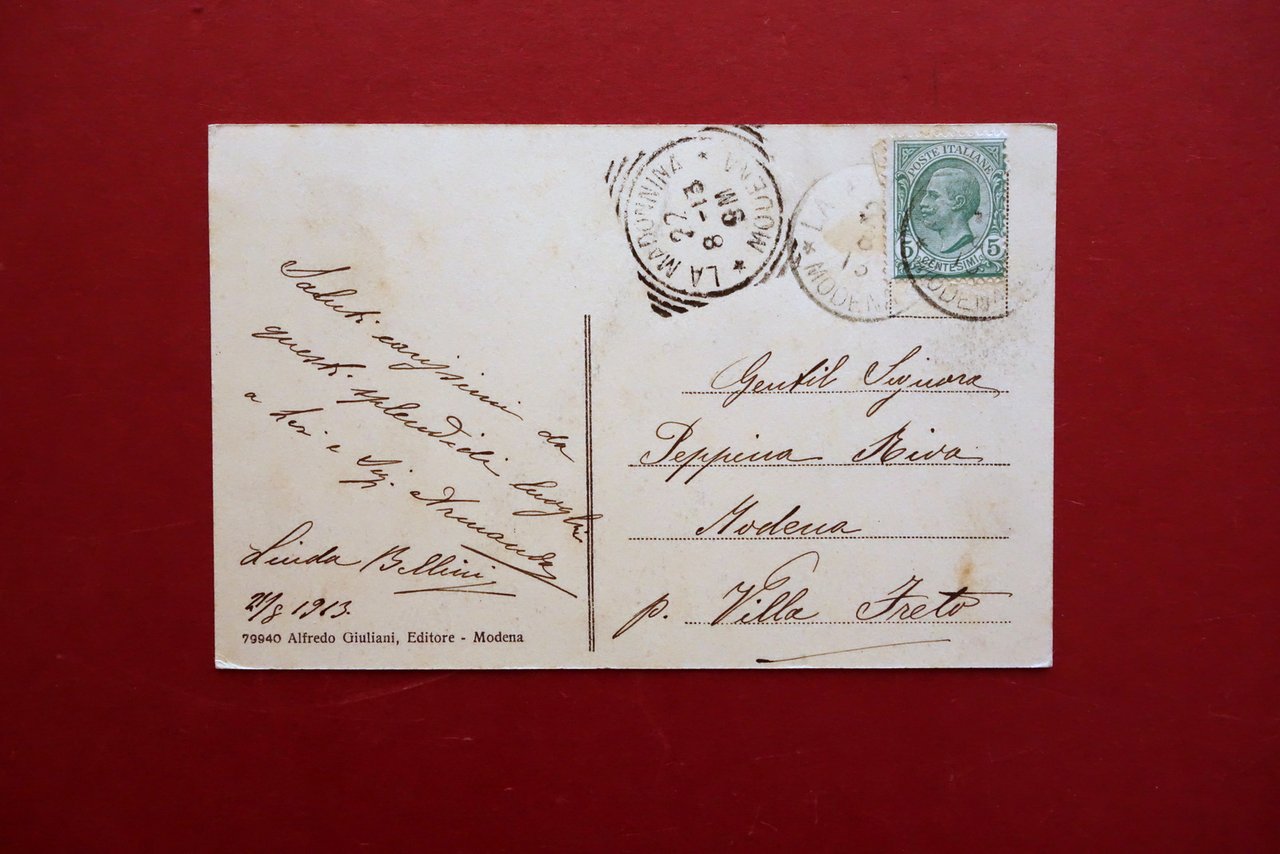 LA MADONNINA * MODENA *
22
8 - 13
9M
LA
MODENA
POSTE ITALIANE
5 5
CENTESIMI
MODENA
Saluti carissimi da
questi splendidi luoghi
a Lei e Sig. Armanda
Linda Bellini
21/8 1913.
79940 Alfredo Giuliani, Editore - Modena
Gentil Signora
Peppina Riva
Modena
p. Villa Freto